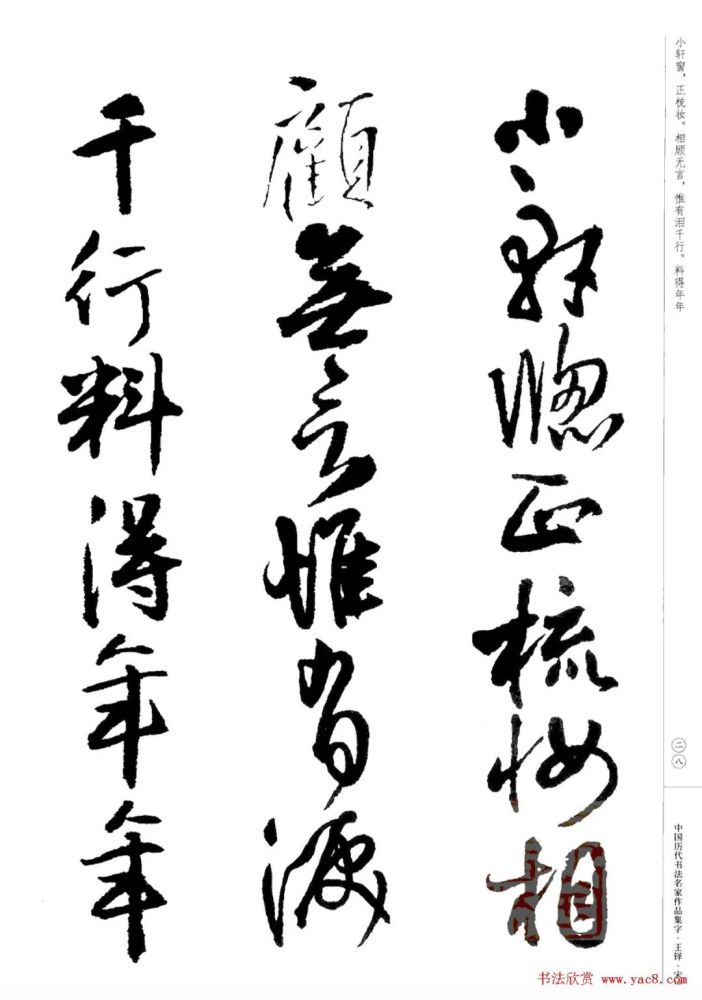 小轩窗，正梳妆。相顾无言，惟有泪千行。料得年年
小軒窻正梳妝相
顧無言惟有淚
千行料得年年
二八
中国历代书法名家作品集字·王铎·宋
书法欣赏 www.yac8.com